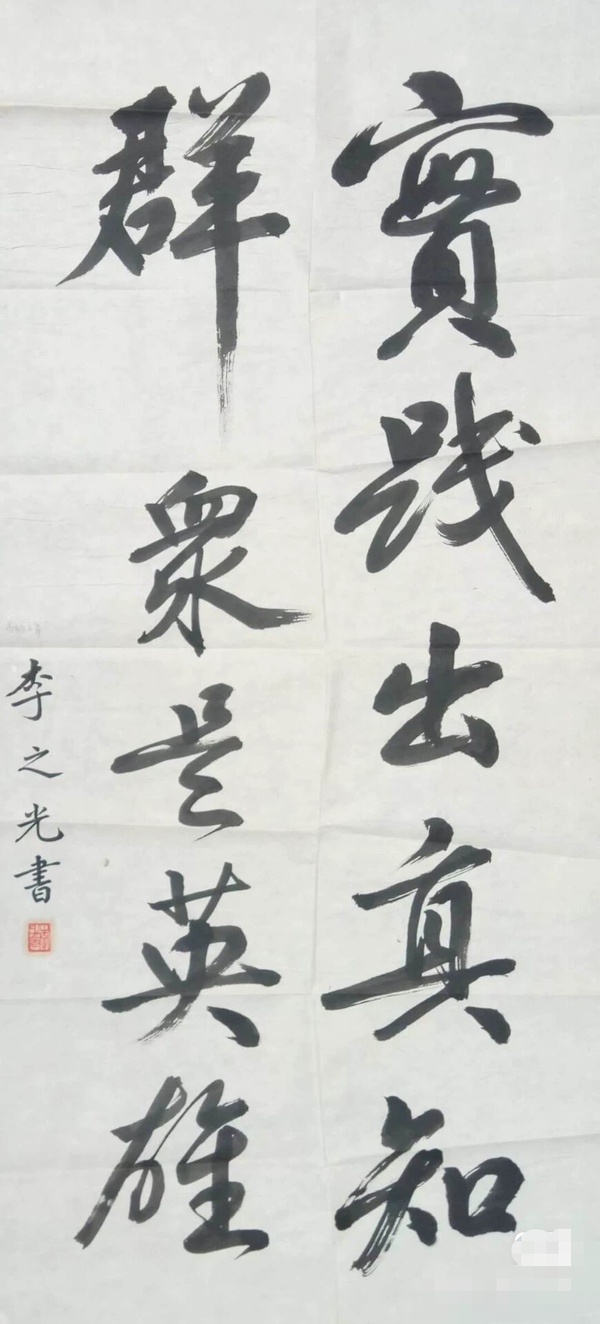 實踐出真知
群眾是英雄
李之光書